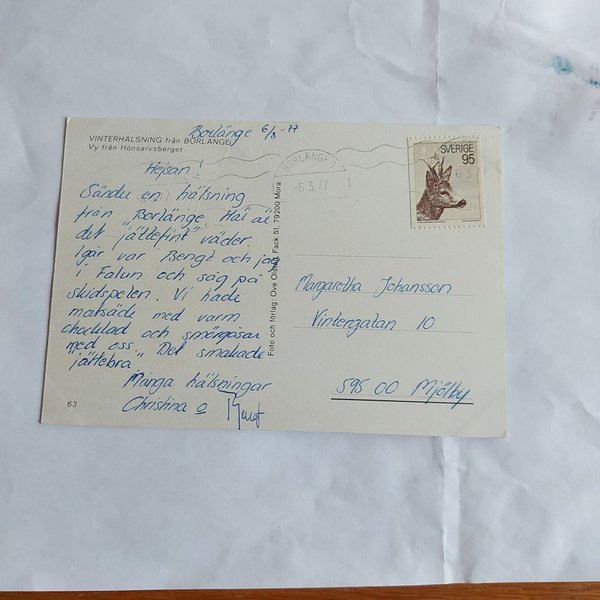 Borlänge 6/3-77
VINTERHÄLSNING från BORLÄNGE
Vy från Hönsarvsberget
Hejsan!
Sänder en hälsning
från Borlänge. Här är
det "jättefint" väder.
Igår var Bengt och jag
i Falun och såg på
skidspelen. Vi hade
matsäck med varm
choklad och smörgåsar
med oss. Det smakade
"jättebra".
Många hälsningar
Christina o Bengt
63
Foto och förlag: Ove Olsson, Fack 51, 79200 Mora
BORLÄNGE 1
-6.3.77
SVERIGE
95
Margaretha Johansson
Vintergatan 10
595 00 Mjölby